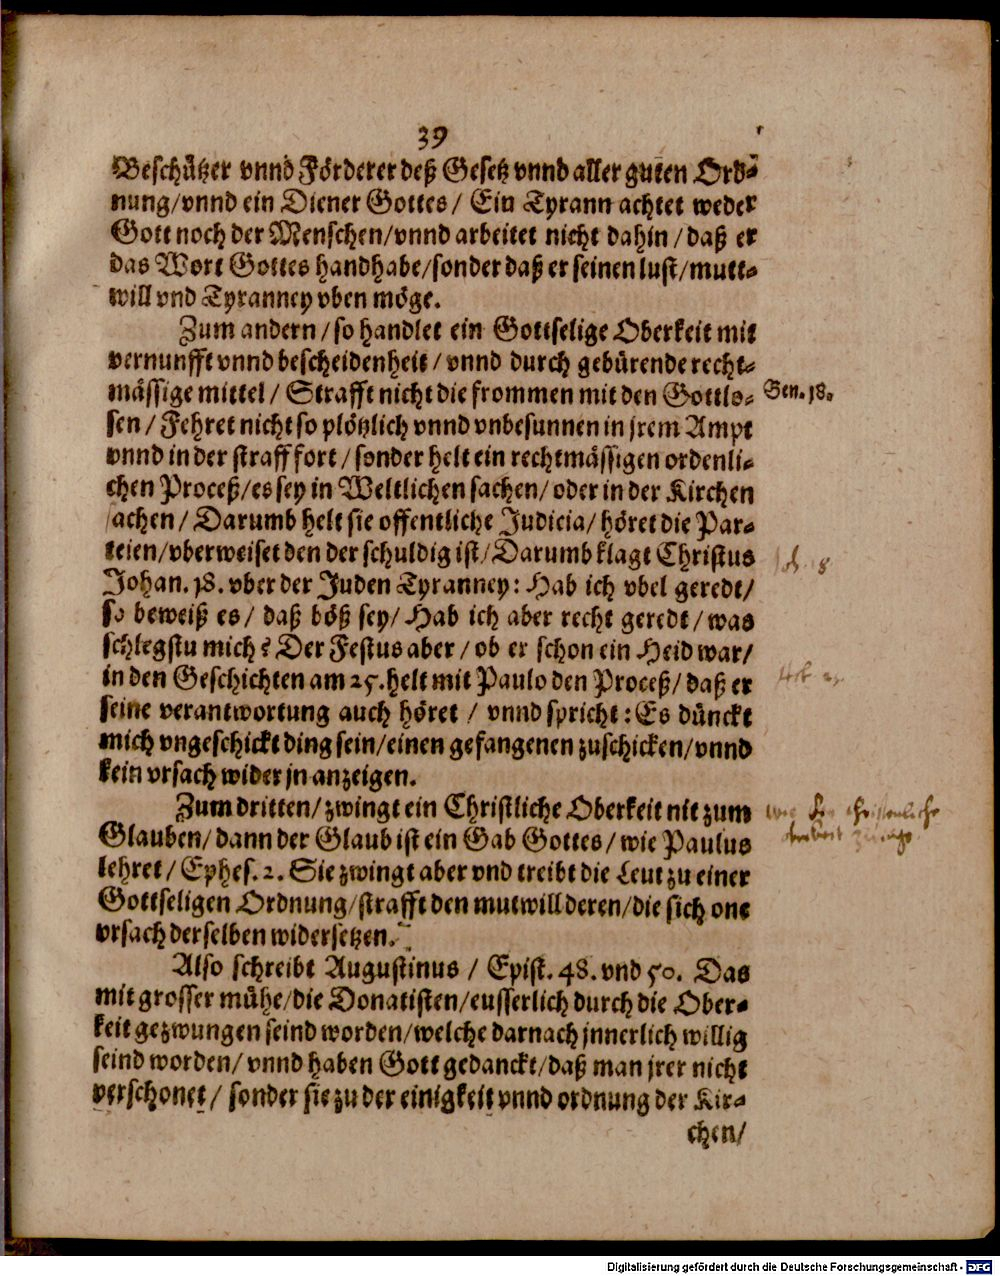 39
Beschützer vnnd Förderer deß Gesetz vnnd aller guten Ord-
nung/vnnd ein Diener Gottes / Ein Tyrann achtet weder
Gott noch der Menschen/vnnd arbeitet nicht dahin / daß er
das Wort Gottes handhabe/sonder daß er seinen lust/mutt-
will vnd Tyranney vben möge.
Zum andern / so handlet ein Gottselige Oberkeit mit
vernunfft vnnd bescheidenheit / vnnd durch gebürende recht-
mässige mittel / Strafft nicht die frommen mit den Gottlo-
Gen. 18.
sen / Fehret nicht so plötzlich vnnd vnbesunnen in jrem Ampt
vnnd in der straff fort / sonder helt ein rechtmässigen ordenli-
chen Proceß/es sey in Weltlichen sachen/ oder in der Kirchen
sachen / Darumb helt sie offentliche Judicia/ höret die Par-
teien/vberweiset den der schuldig ist/ Darumb klagt Christus
Johan. 18. vber der Juden Tyranney: Hab ich vbel geredt/
so beweiß es / daß böß sey/ Hab ich aber recht geredt / was
schlegstu mich? Der Festus aber / ob er schon ein Heid war/
in den Geschichten am 25. helt mit Paulo den Proceß/ daß er
seine verantwortung auch höret / vnnd spricht: Es dünckt
mich vngeschickt ding sein/einen gefangenen zuschicken/vnnd
kein vrsach wider jn anzeigen.
Zum dritten/ zwingt ein Christliche Oberkeit nit zum
Glauben/ dann der Glaub ist ein Gab Gottes / wie Paulus
lehret / Ephes. 2. Sie zwingt aber vnd treibt die Leut zu einer
Gottseligen Ordnung/strafft den mutwill deren/die sich one
vrsach derselben widersetzen.
Also schreibt Augustinus / Epist. 48. vnd 50. Das
mit grosser mühe/die Donatisten/eusserlich durch die Ober-
keit gezwungen seind worden/welche darnach jnnerlich willig
seind worden/ vnnd haben Gott gedanckt/daß man jrer nicht
verschonet / sonder sie zu der einigkeit vnnd ordnung der Kir-
chen/
Digitalisierung gefördert durch die Deutsche Forschungsgemeinschaft - DFG